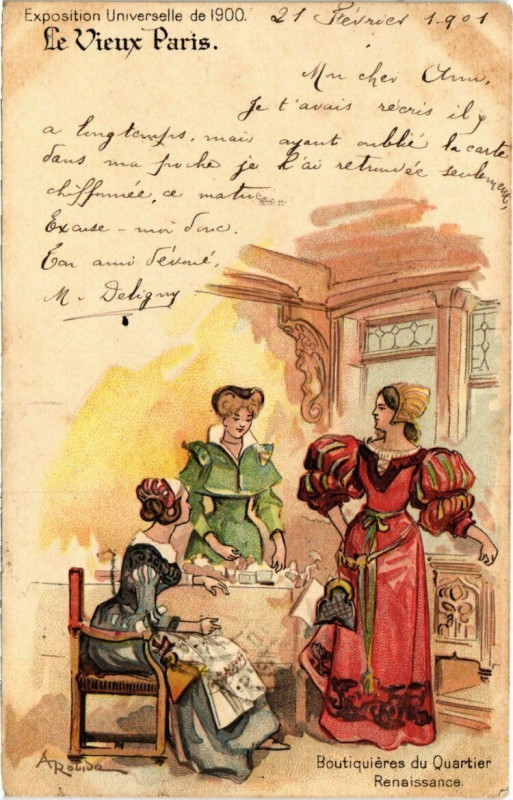 Exposition Universelle de 1900.
21 Février 1901
Le Vieux Paris.
Mon cher
Je t'avais récris il y
a longtemps, mais ayant oublié la carte
dans ma poche je l'ai retrouvée seulement,
chiffonnée, ce matin.
Excuse-moi donc.
Ton ami dévoué,
M. Deligny
A. Robida
Boutiquières du Quartier
Renaissance.